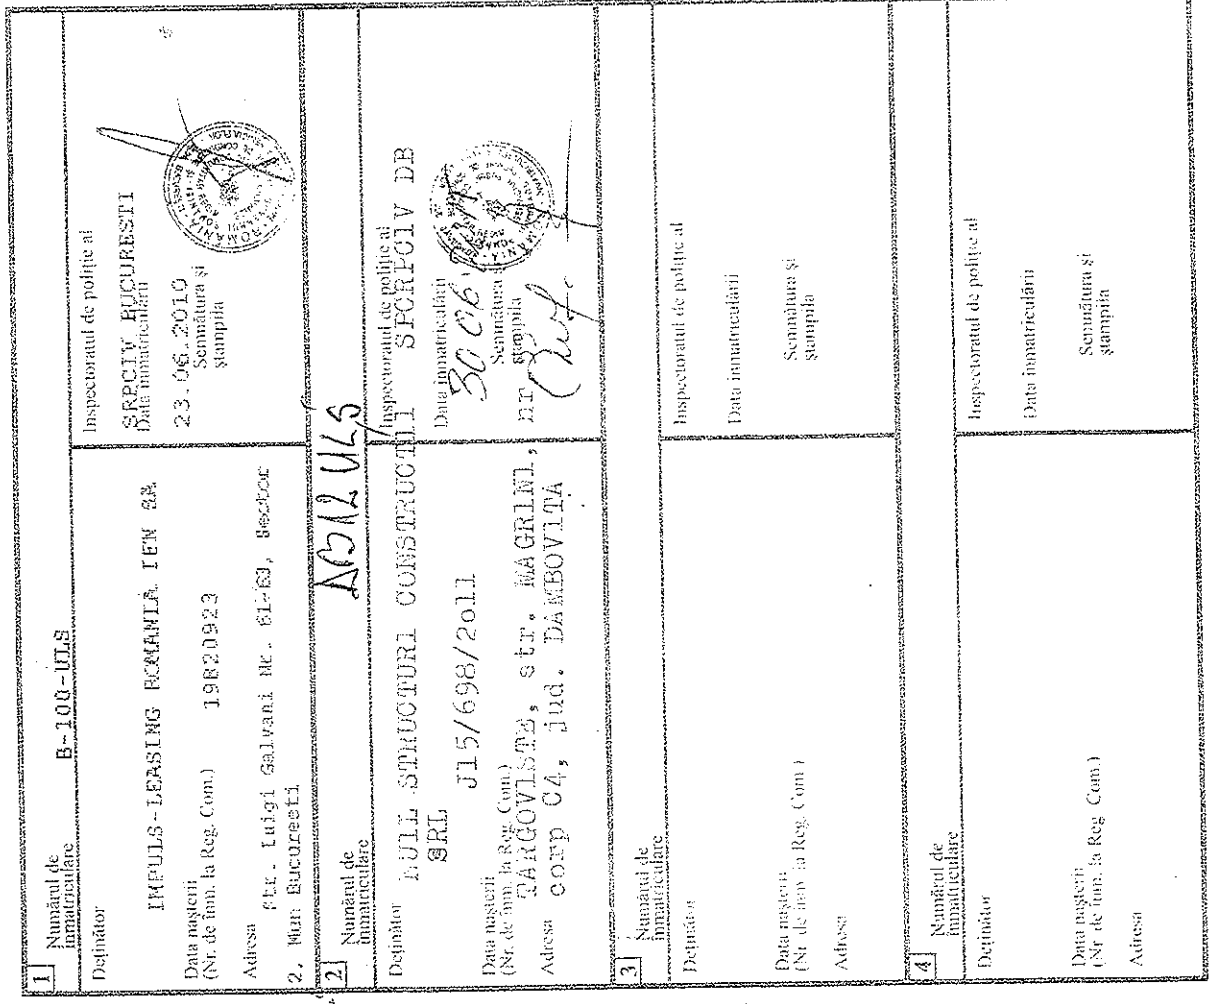 1 Numărul de
înmatriculare B-100-ULS
Deținător
IMPULS-LEASING ROMANIA IFN SA
Data nașterii
(Nr. de înm. la Reg. Com.) 19820923
Adresa Str. Luigi Galvani Nr. 61-63, Sector
2. Mun Bucuresti
Inspectoratul de poliție al
SRPCIV BUCURESTI
Data înmatriculării
23.06.2010
Semnătura și
ștampila
2 Numărul de
înmatriculare DB 12 ULS
Deținător STRUCTURI CONSTRUCTII
SRL
J15/698/2011
Data nașterii
(Nr. de înm. la Reg. Com.)
TARGOVISTE, str. MAGRINI, nr
Adresa corp C4, jud. DAMBOVITA
Inspectoratul de poliție al
SPCRPCIV DB
Data înmatriculării
30 06
Semnătura și
ștampila
3 Numărul de
înmatriculare
Deținător
Data nașterii
(Nr. de înm. la Reg. Com.)
Adresa
Inspectoratul de poliție al
Data înmatriculării
Semnătura și
ștampila
4 Numărul de
înmatriculare
Deținător
Data nașterii
(Nr. de înm. la Reg. Com.)
Adresa
Inspectoratul de poliție al
Data înmatriculării
Semnătura și
ștampila